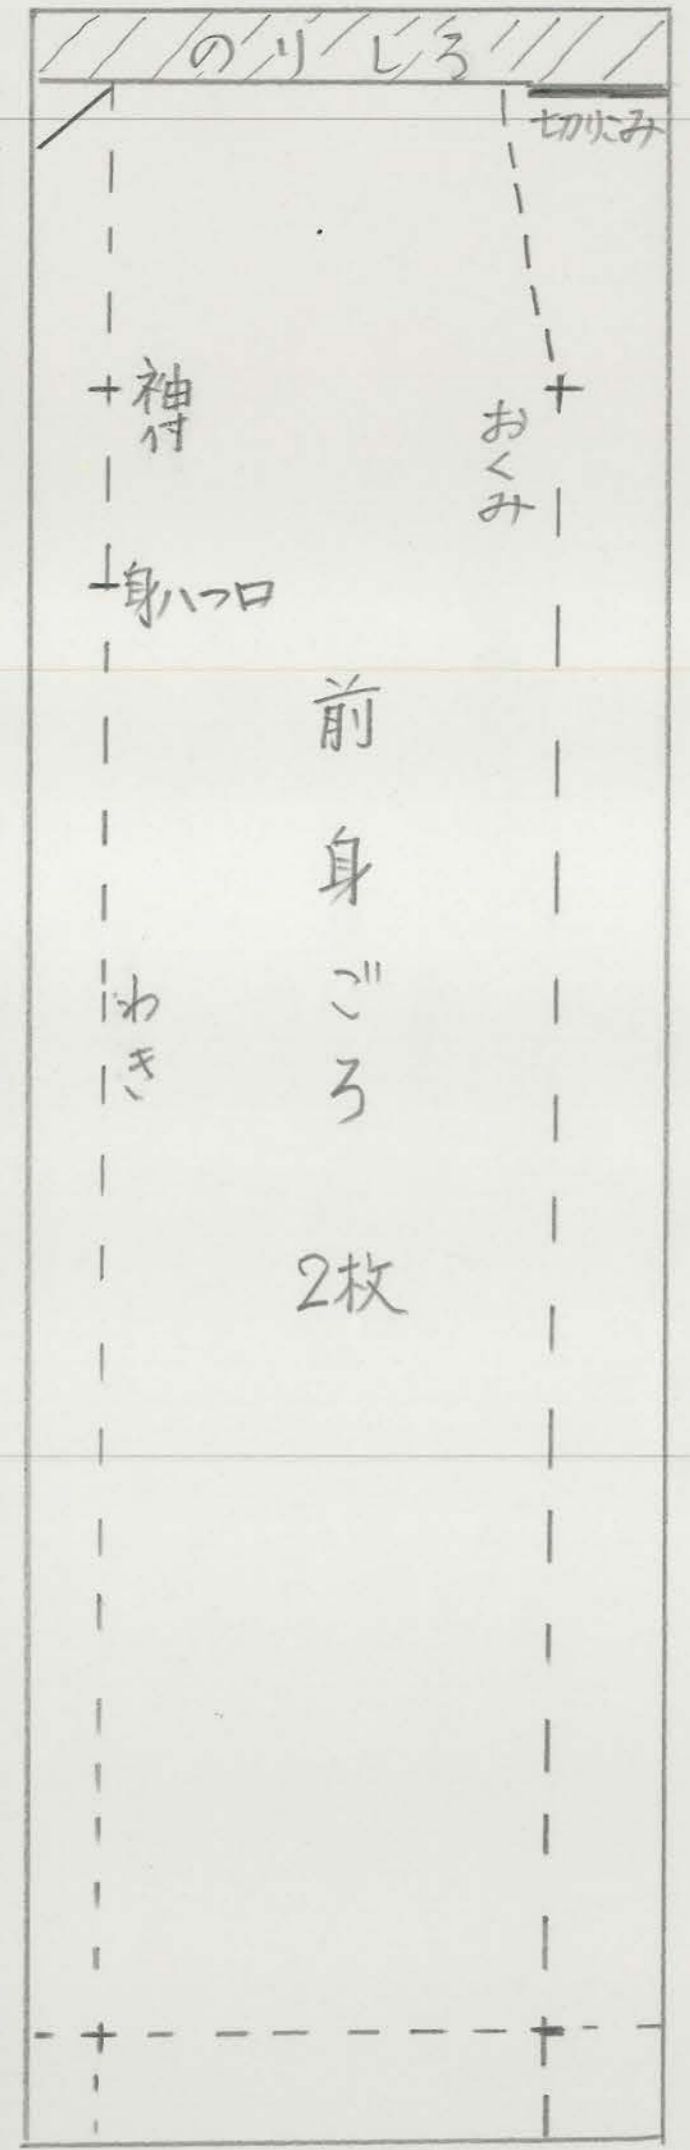 のりしろ
切りこみ
袖付
おくみ
身八つ口
前身ごろ
わき
2枚